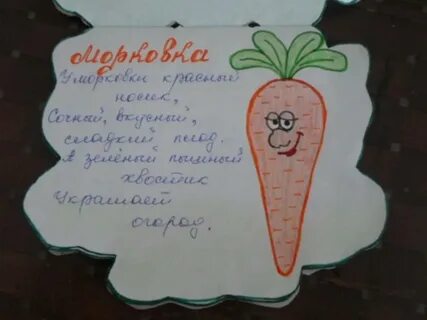 Морковка
У морковки красный
носик,
Сочный, вкусный,
сладкий плод.
А зелёный пышный
хвостик
Украшает
огород.